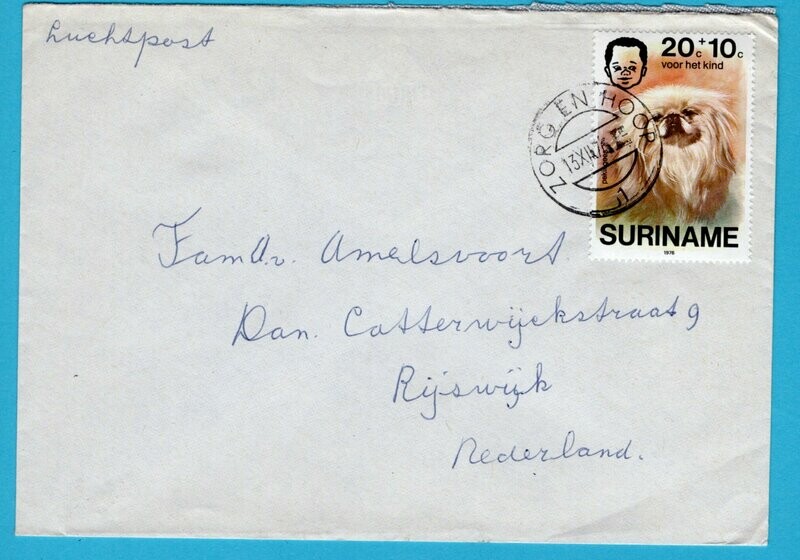 Luchtpost
20c+10c
voor het kind
ZORG EN HOOP
13.XII.76
1
SURINAME
1976
Fam A.v. Amelsvoort
Dan. Catterwijckstraat 9
Rijswijk
Nederland.